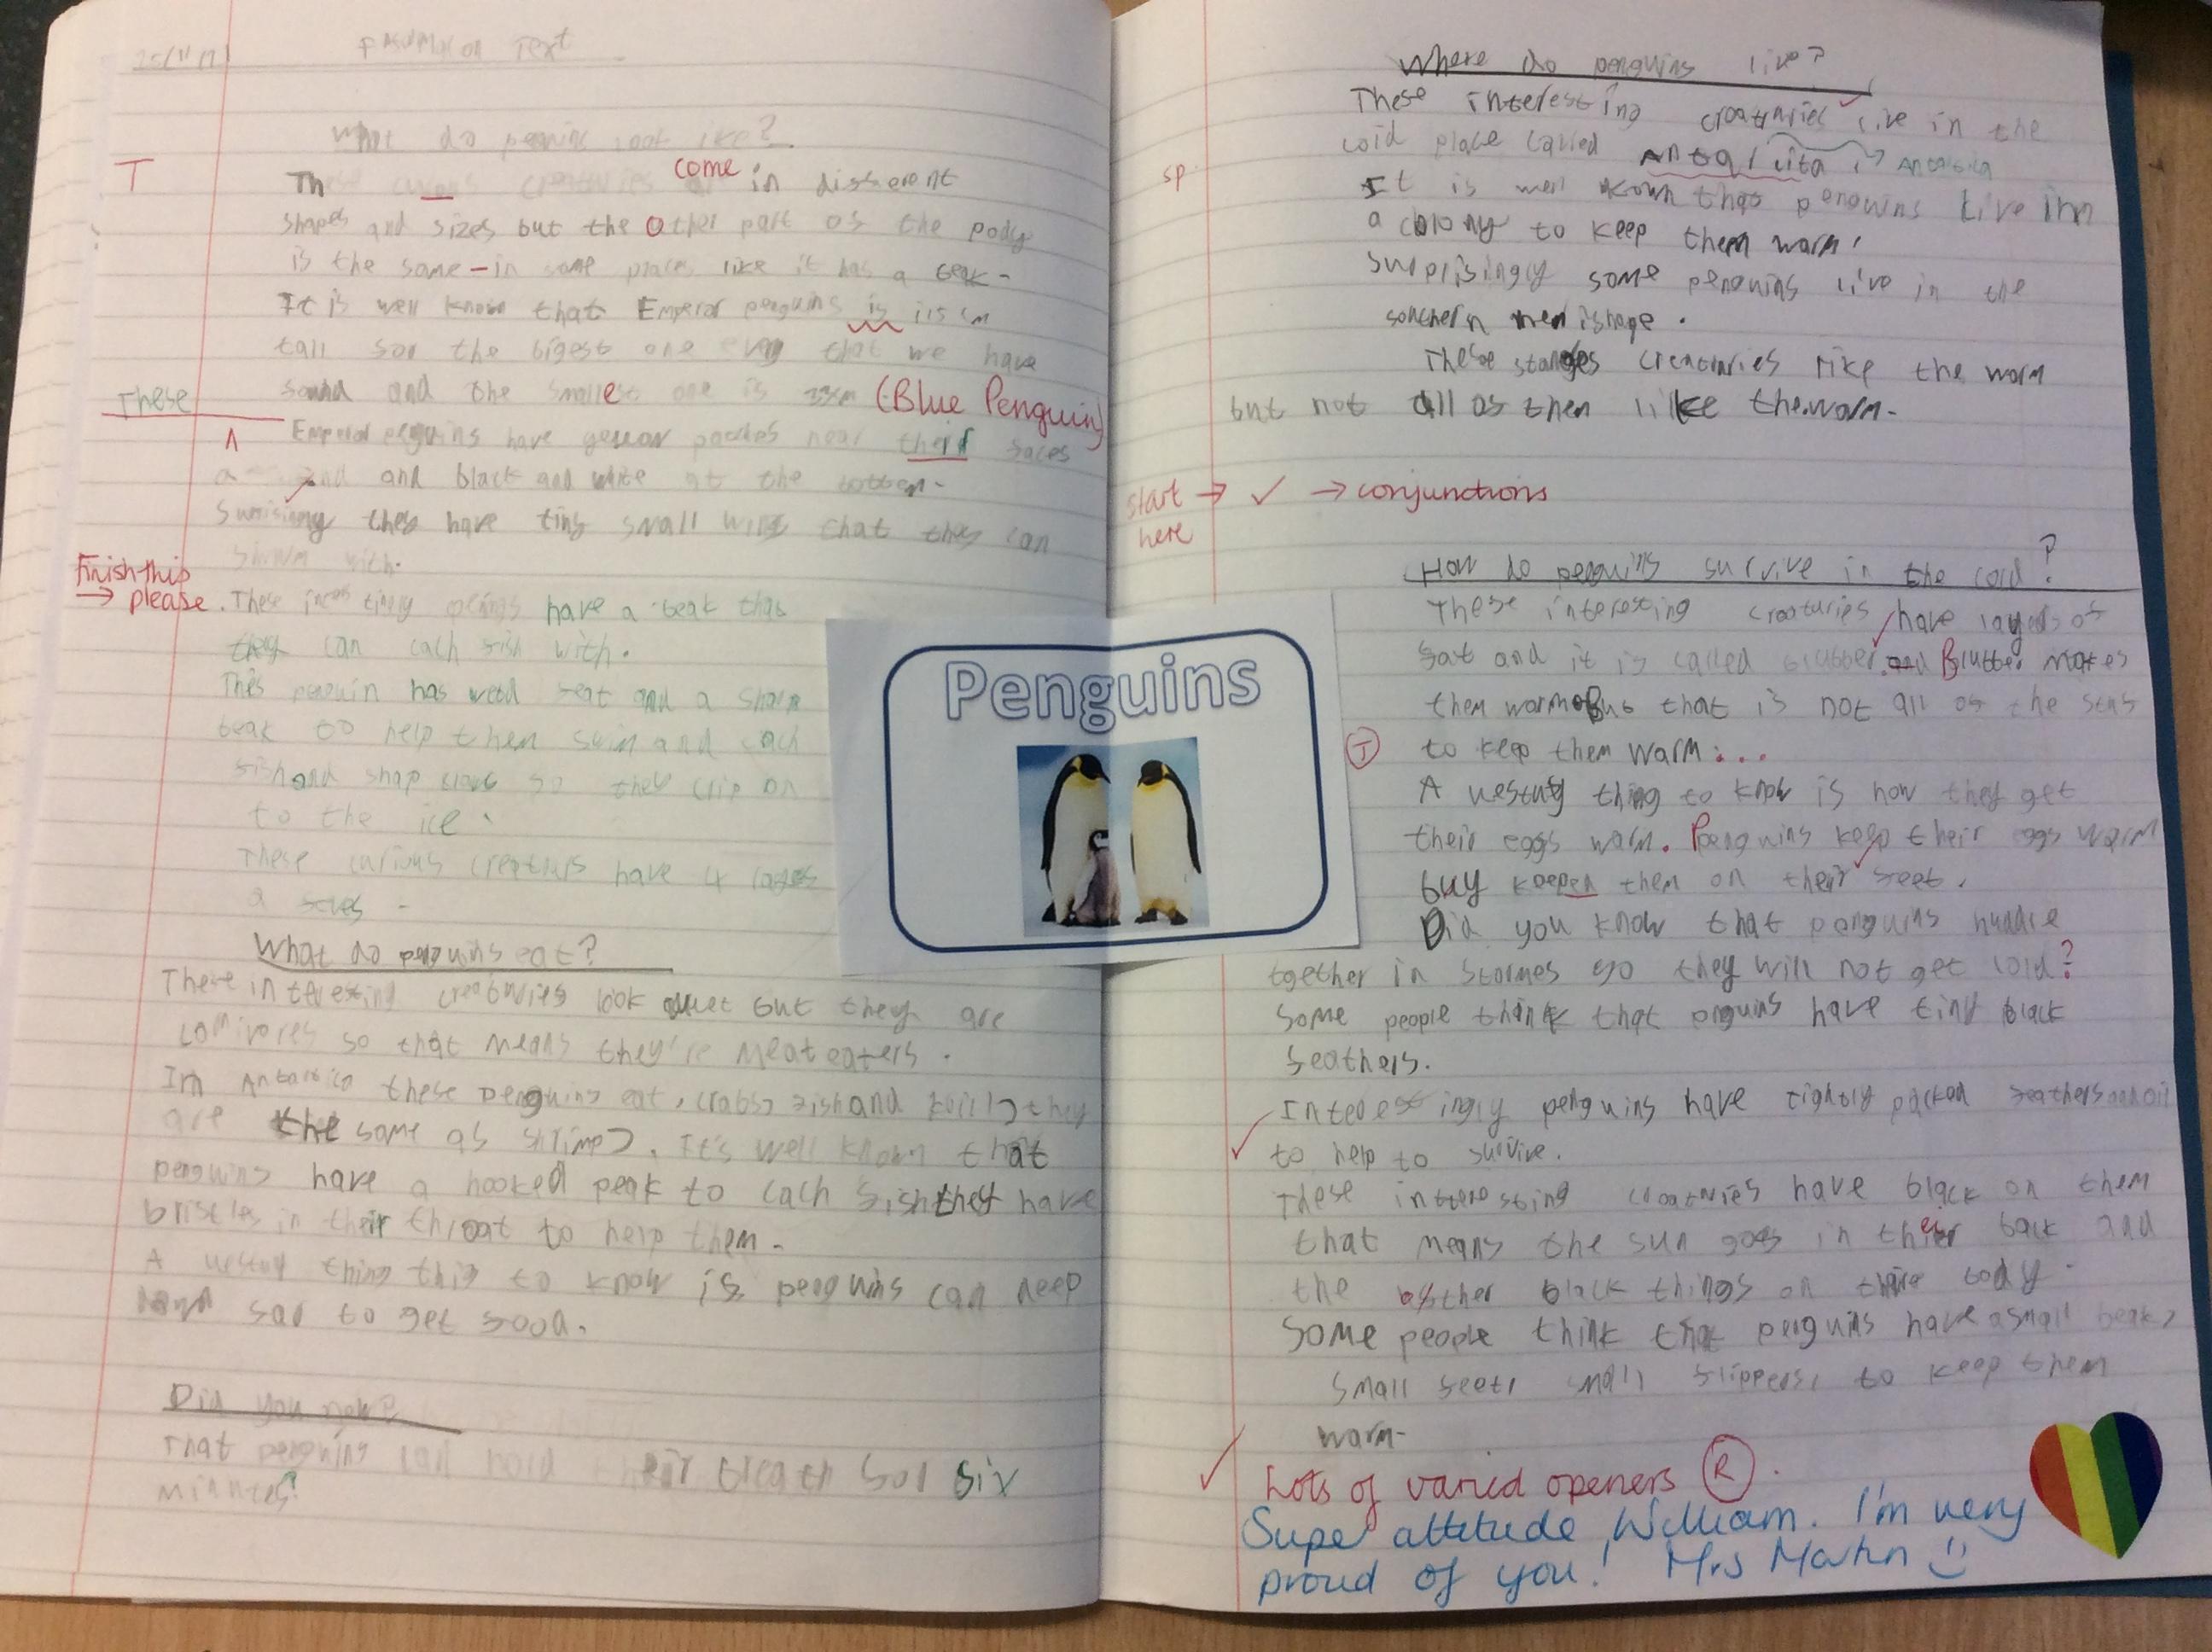 Text
What do penguins look like?
T
come
These creaturies in disherent
shapes and sizes but the other part os the pody
is the same-in some places like it has a beak-
It is well known that Emperor penguins is 115 cm
tall sor the bigest one evey that we have
sound and the smallest one is (Blue Penguin)
These
Emperor penguins have patches near their saces
and black and white at the
they have tiny small that they can
with.
Finish this
→ please
These have a beak that
they can cach sish with.
This penguin has and a sharp
beak to help them swim and cach
sish and shap so they on
to the ice.
These curious have 4
a
What do penguins eat?
These interesting creaturies look but they are
so that means they're meat eaters.
In Antartica these penguins eat, crabs, sish and (they
are the same as shrimp). It's well known that
penguins have a hooked peak to cach sish they have
bristles in their throat to help them.
A thing this to know is penguins can
sar to get sood.
Did you now?
That penguins can hold their breath sor six
?
Where do penguins live?
These interesting creaturies live in the
cold place called Antartica
sp.
It is well kown that penguins live inn
a colony to keep them warm.
Surprisingly some penguins live in the
southern
These creaturies like the worm
but not all os then like the worm-
start → ✓ → conjunctions
here
How do penguins survive in the cold?
These interesting creaturies have layers os
sat and it is called blubber. and Blubber makes
them warm But that is not all os the
T
to keep them warm...
A thing to know is how they get
their eggs warm. Penguins keep their eggs warm
buy keepen them on their seet.
Did you know that penguins huddle
together in stormes so they will not get cold?
Some people think that penguins have tiny black
seathers.
Interestingly penguins have tightly packed seathers oil
to help to survive.
These interesting creaturies have black on them
that means the sun goes in their back and
the other black things on body.
Some people think that penguins have a small beak,
small seet, small slippers, to keep them
warm-
Lots of varied openers R.
Super attitude, William. I'm very
proud of you! Mrs Martin
Penguins